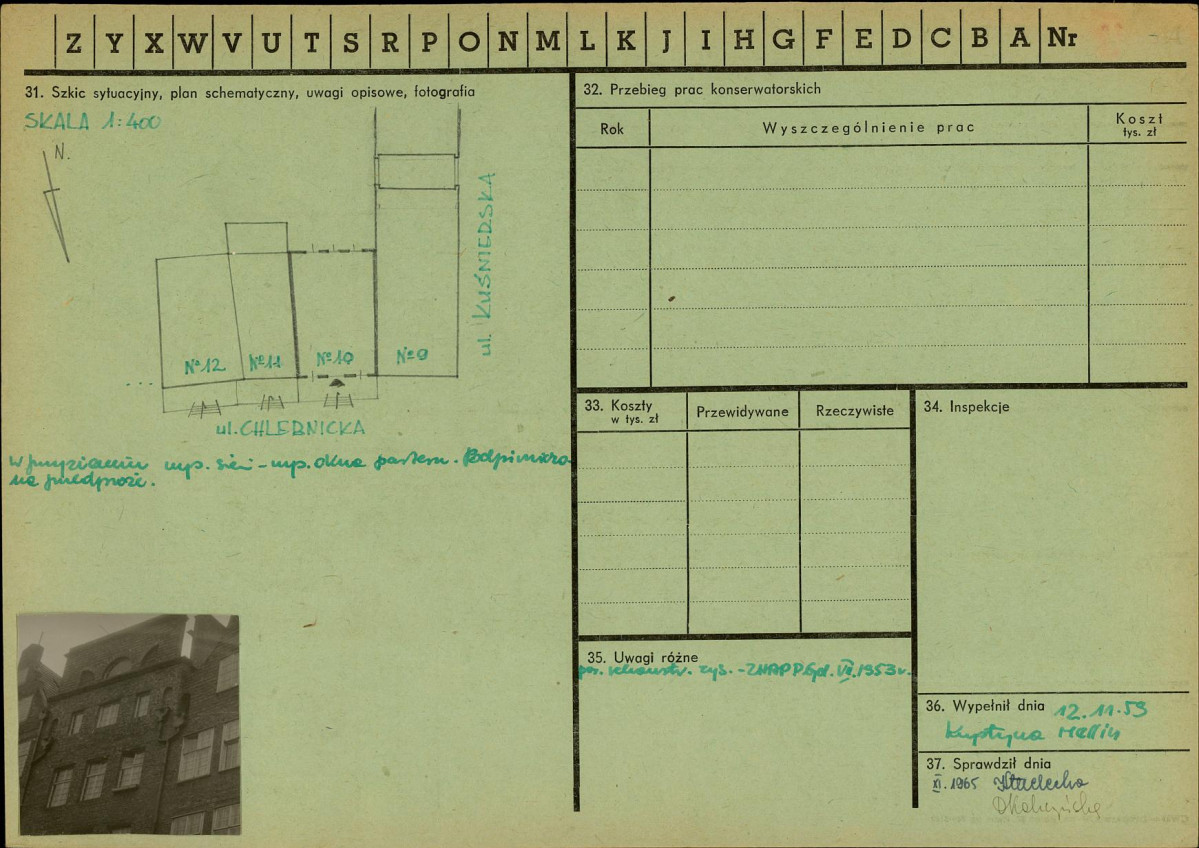 Z Y X W V U T S R P O N M L K J I H G F E D C B A Nr
31. Szkic sytuacyjny, plan schematyczny, uwagi opisowe, fotografia
SKALA 1:400
N.
ul. KUŚNIERSKA
Nº12 Nº11 Nº10 Nº9
ul. CHLEBNICKA
w przyziemiu wys. sieni - wys. okna parteru.
na przedproże.
32. Przebieg prac konserwatorskich
Rok Wyszczególnienie prac Koszt
tys. zł
33. Koszty
w tys. zł
Przewidywane Rzeczywiste
34. Inspekcje
35. Uwagi różne
rys. - 1953 r.
36. Wypełnił dnia 12.11.59
Krystyna
37. Sprawdził dnia
XI. 1965